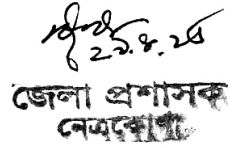 ২৯.৪.২৫
জেলা প্রশাসক
নেত্রকোণা